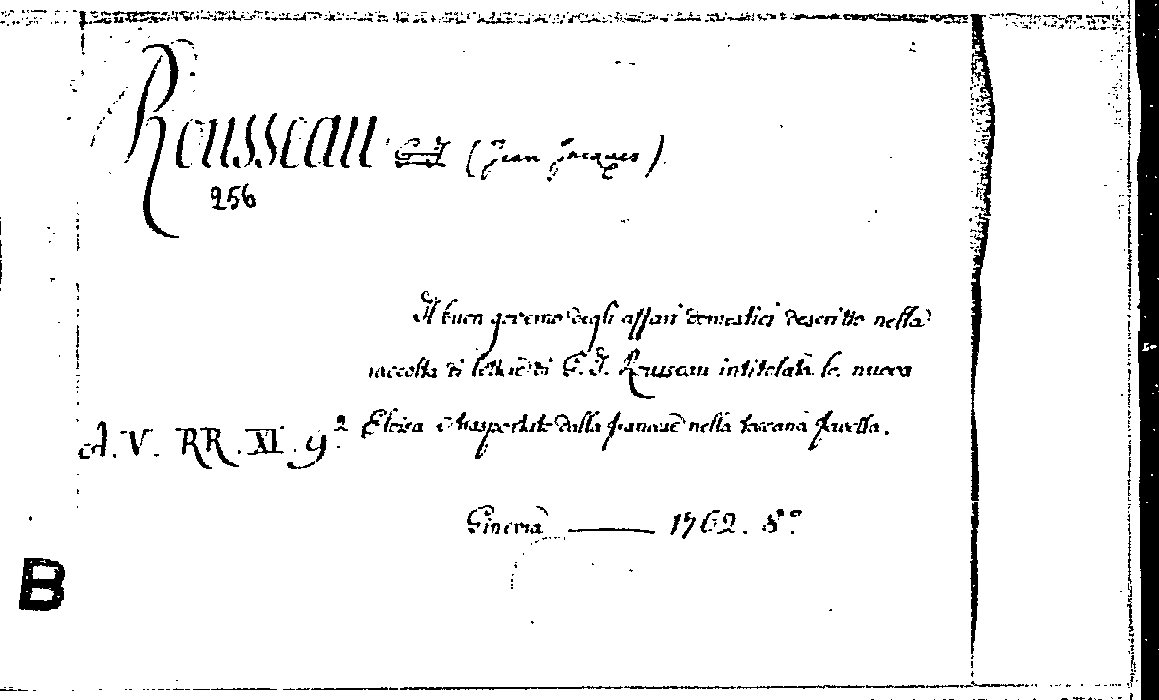 Rousseau G. J. (Jean Jacques).
256
Il buon governo degli affari domestici descritto nella
raccolta di lettere di G. J. Rousseau intitolata la nuova
A. V. RR. XI. 9.² Eloisa e trasportato dalla francese nella toscana favella.
Ginevra — 1762. 8.º
B